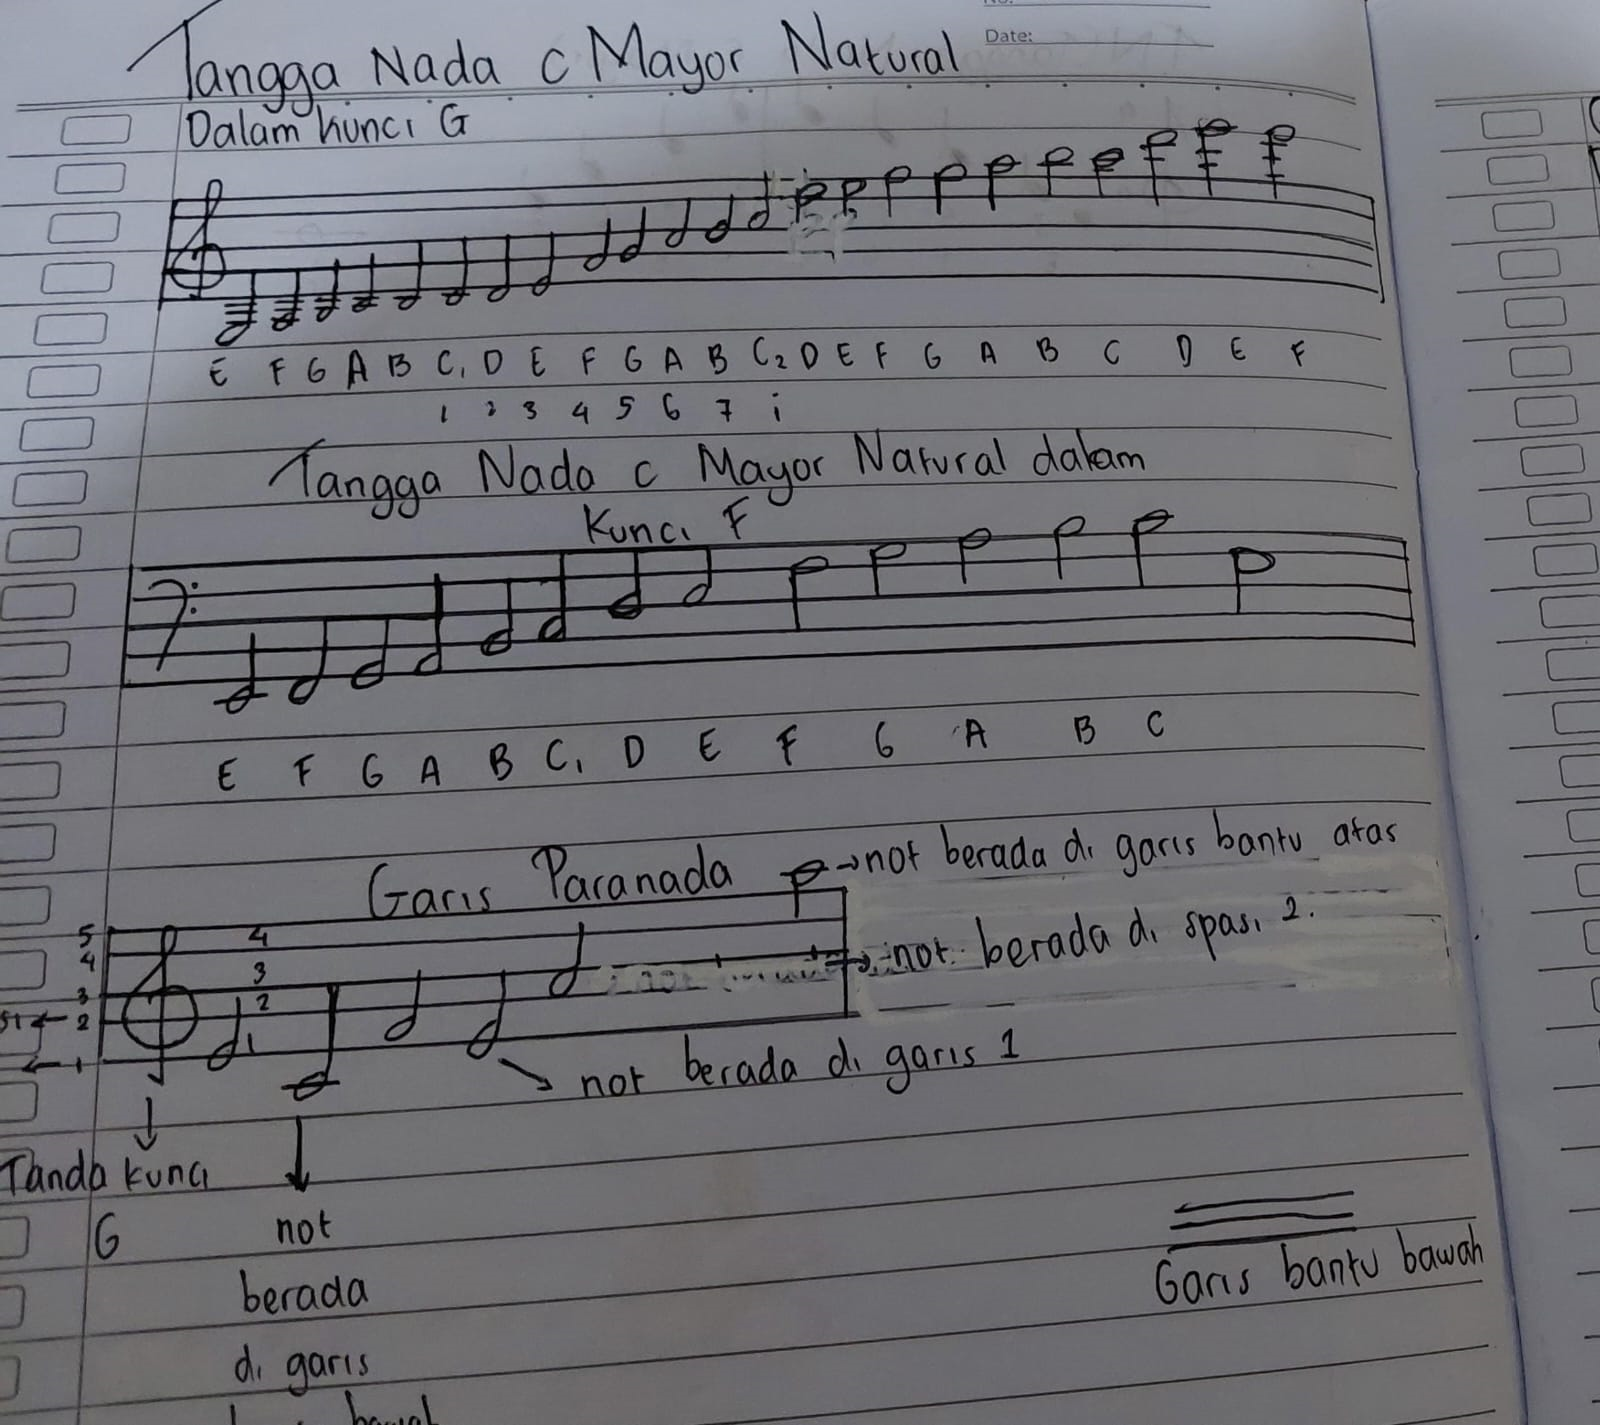 Date:
Tangga Nada C Mayor Natural
Dalam kunci G
E F G A B C1 D E F G A B C2 D E F G A B C D E F
1 2 3 4 5 6 7 i
Tangga Nada C Mayor Natural dalam
Kunci F
E F G A B C1 D E F G A B C
Garis Paranada → not berada di garis bantu atas
5 4
4 → not berada di spasi 2.
3 3
← 2 2
← 1 1
→ not berada di garis 1
Tanda kunci
G not
berada
di garis
Garis bantu bawah